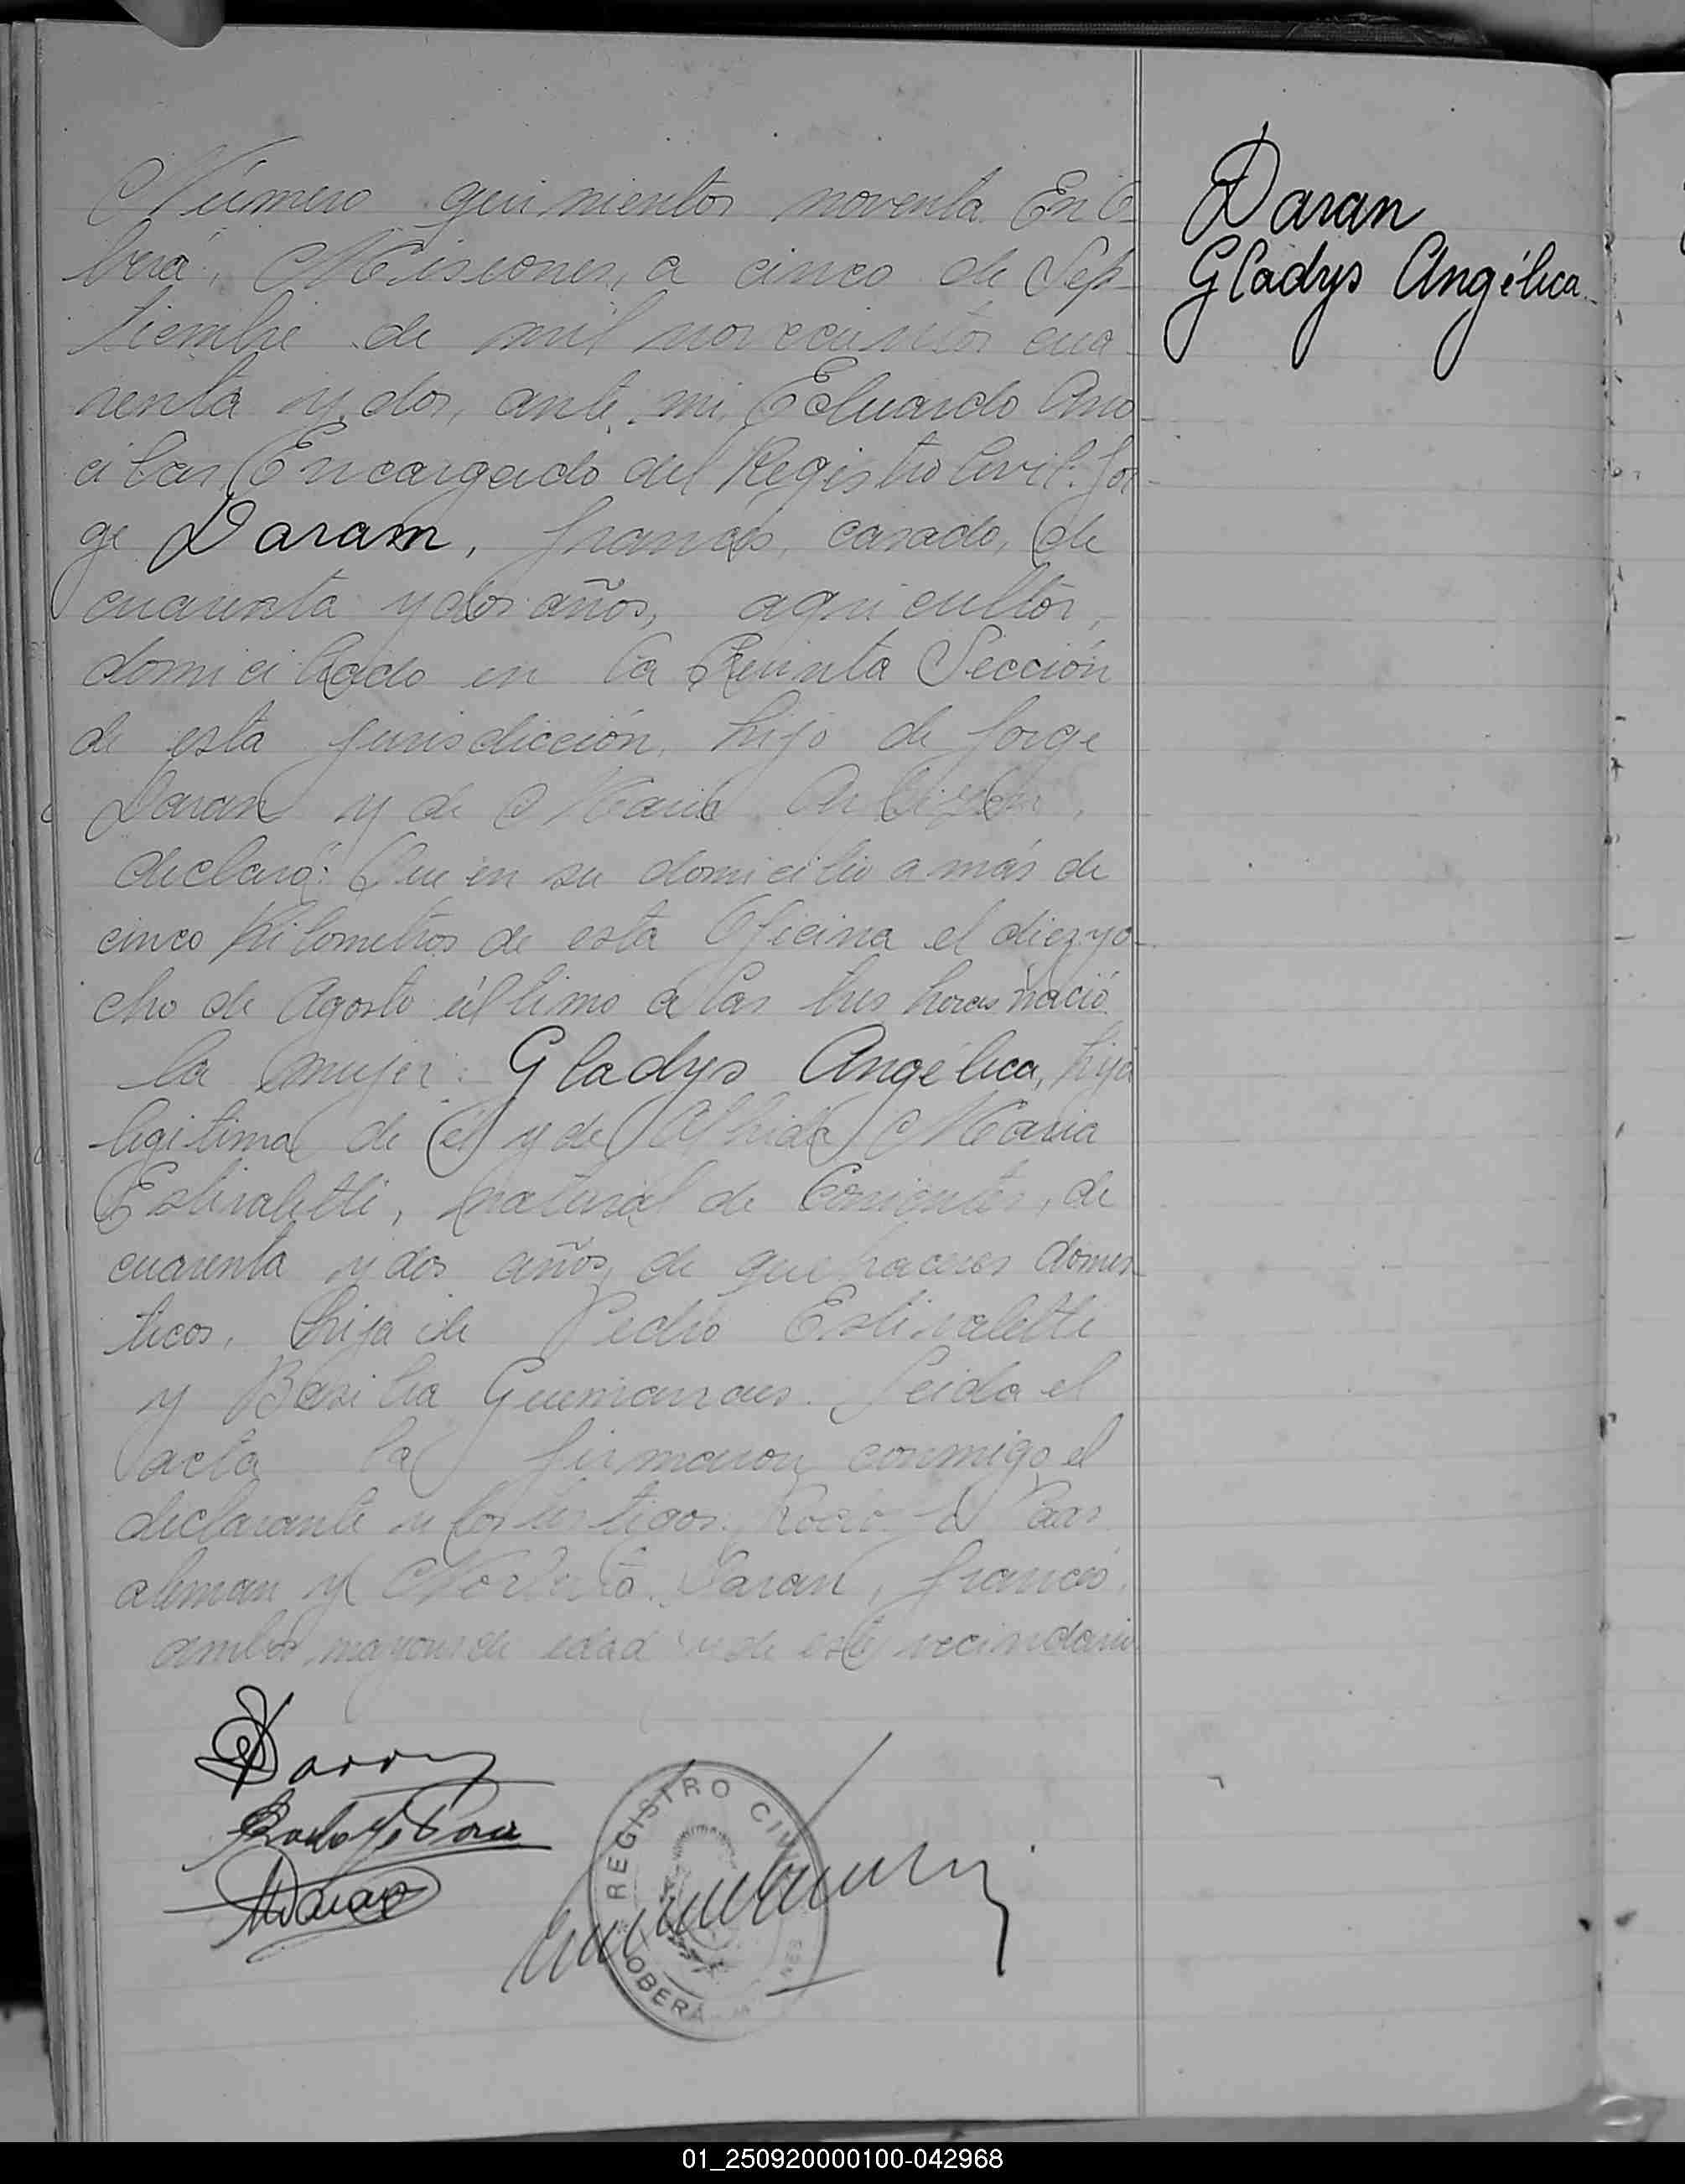 Número quinientos noventa. En O-
berá, Misiones, a cinco de Sep-
tiembre de mil novecientos cua-
renta y dos, ante mi, Eduardo
Encargado del Registro Civil: Jor-
ge Daram, francés, casado, de
cuarenta y dos años, agricultor,
domiciliado en la Quinta Sección
de esta jurisdicción, hijo de Jorge
Daran y de Maria
declaró: Que en su domicilio a más de
cinco kilometros de esta Oficina el diez y o-
cho de Agosto último a las tres horas nació
la mujer: Gladys Angélica, hija
legitima de él y de Maria
Estivaletti, natural de Corrientes, de
cuarenta y dos años, de quehaceres domes-
ticos, hija de Pedro Estivaletti
y Basilia Guemaraes. Leida el
acta la firmaron conmigo el
declarante y los testigos:
aleman y Daran, francés,
ambos mayores de edad y de este vecindario
Daran
Gladys Angélica
REGISTRO CIVIL
OBERÁ
01_250920000100-042968